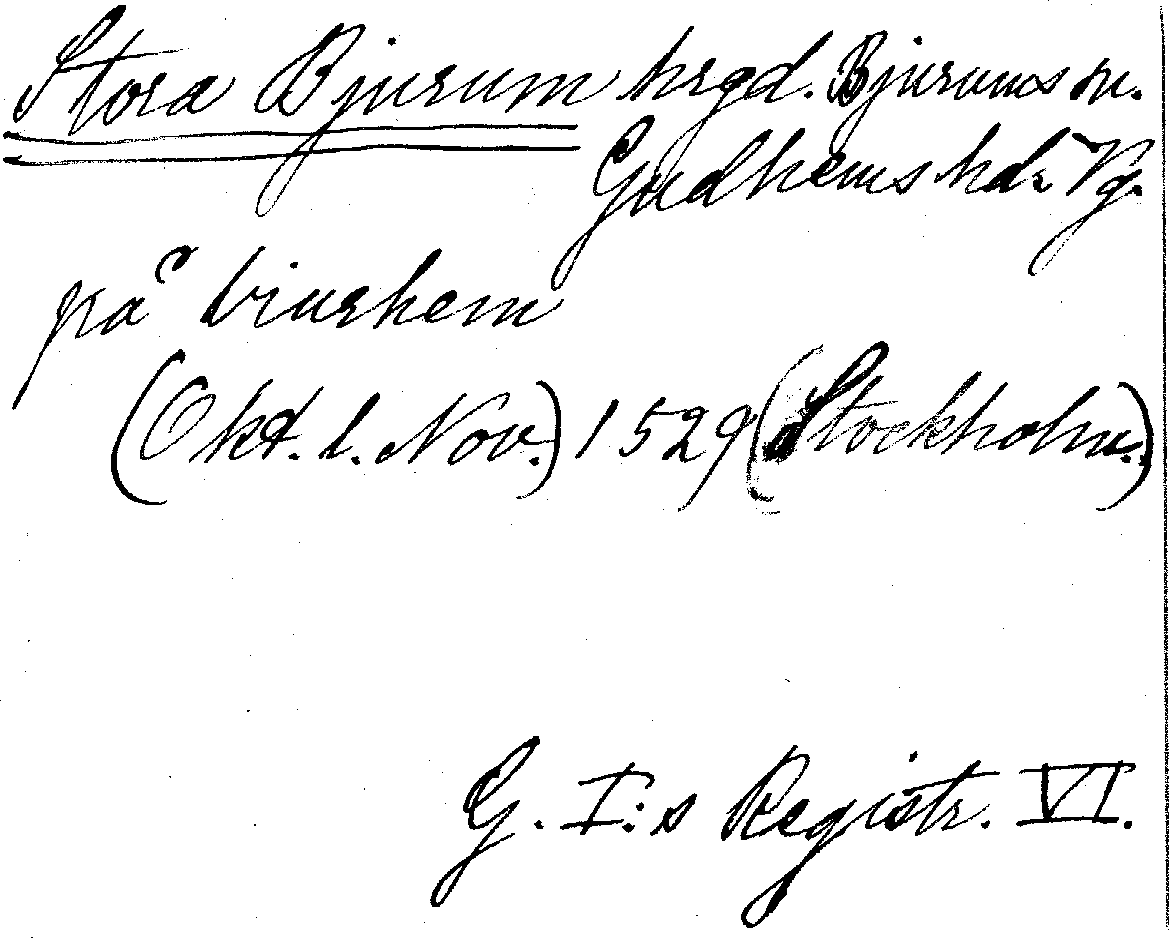 Stora Bjurum hrgd. Bjurums sn.
Gudhems hd. Vg.
på biurhem
(Okt. l. Nov.) 1529 (Stockholm.)
G. I:s Registr. VI.